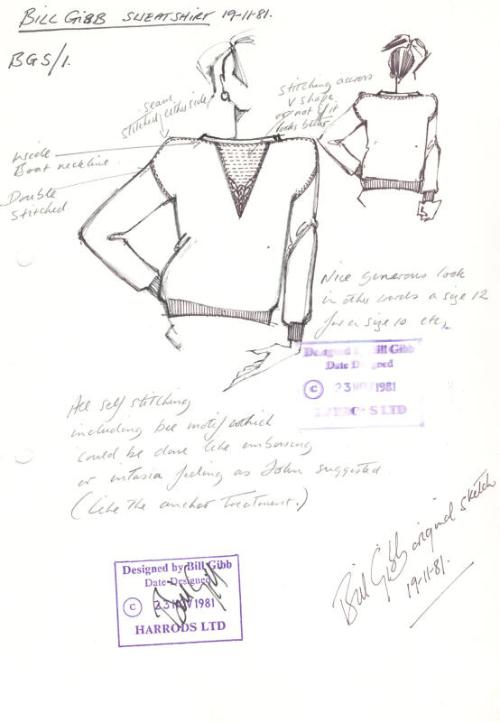 BILL GIBB SWEATSHIRT 19-11-81.
BGS/1.
seam
stitched either side
stitching across
V shape
or not if it
looks better
Boat neckline.
Double
stitched
Nice generous look
in other words a size 12
for a size 10 etc.
Designed by Bill Gibb
Date Designed
© 23 NOV 1981
LTD
All self stitching
including bee motif which
could be done like embossing
or intasia feeling as John suggested
(like the anchor treatment.)
Designed by Bill Gibb
Date Designed
© 23 NOV 1981
HARRODS LTD
Bill Gibb
Bill Gibb original sketch
19-11-81.